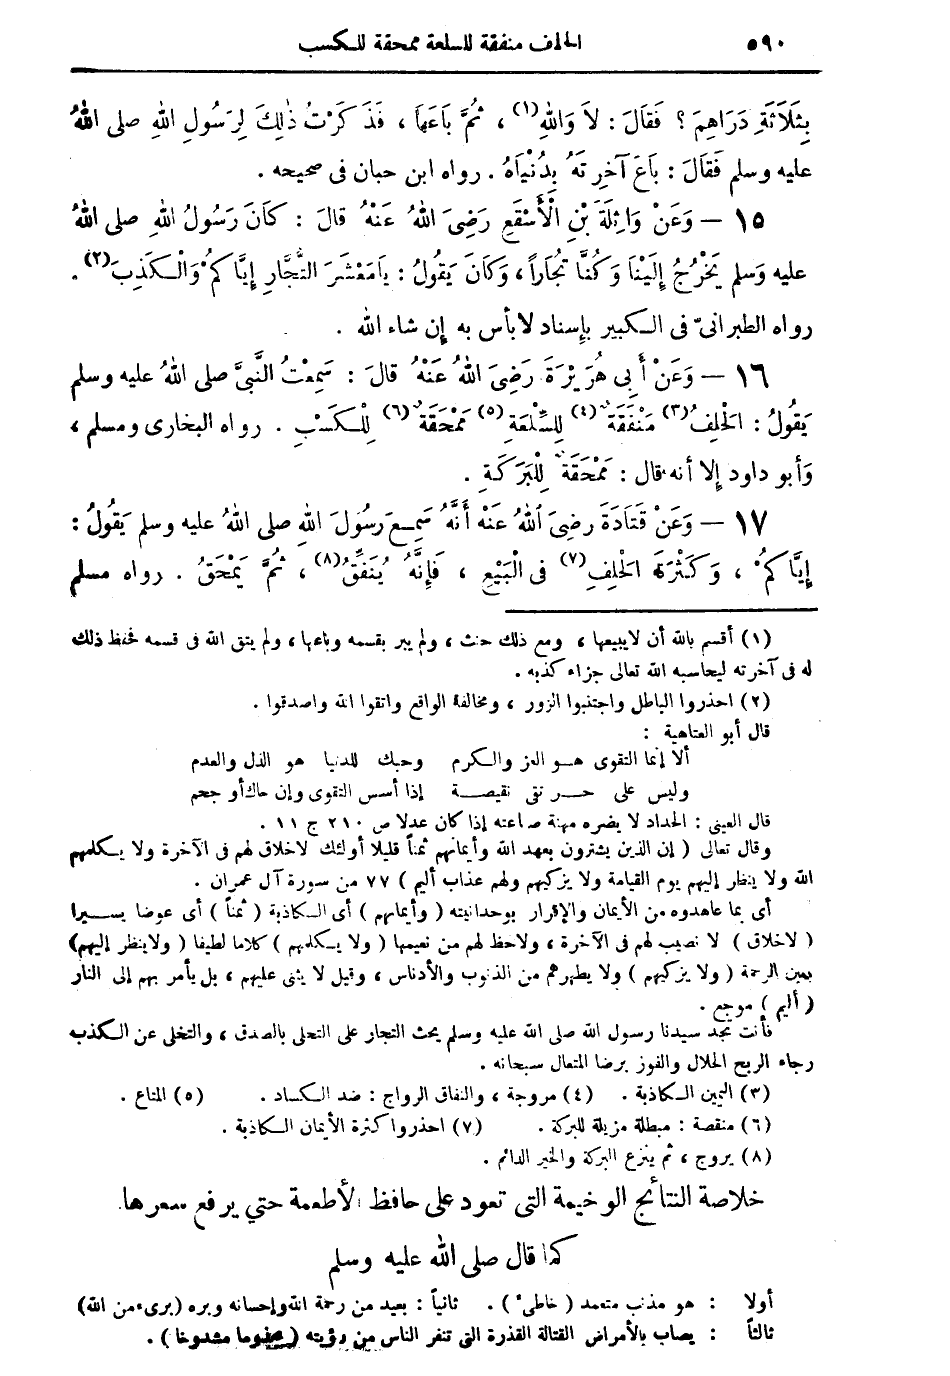 ٥٩٠ الحلف منفقة للسلعة ممحقة للكسب
بِثَلَاثَةِ دَرَاهِمَ ؟ فَقَالَ : لاَ وَاللهِ (١) ، ثُمَّ بَاعَهَا ، فَذَ كَرْتُ ذٰلِكَ لِرَسُولِ اللهِ صلى اللهُ
عليه وسلم فَقَالَ : بَاعَ آخِرتَهُ بِدُنْيَاهُ . رواه ابن حبان فى صحيحه .
١٥ — وَعَنْ وَاثِلَةَ بْنِ الْأَسْقَعِ رَضِىَ اللهُ عَنْهُ قالَ : كَانَ رَسُولُ اللهِ صلى اللهُ
عليه وَسلم يَخْرُجُ إِلَيْنَا وَكُنَّا تُجَّاراً ، وَكَانَ يَقُولُ : يامَعْشَرَ التُّجَّارِ إِيَّا كمُ وَالْـكَذِبَ (٢) .
رواه الطبرانىّ فى الـكبير بإسناد لابأس به إن شاء الله .
١٦ — وَعَنْ أَبِى هُرَيْرَةَ رَضِىَ اللهُ عَنْهُ قالَ : سَمِعْتُ النَّبِىَّ صلى اللهُ عليه وسلم
يَقُولُ : الْحَلِفُ (٣) مَنْفَقَةٌ (٤) لِلسِّلْعَةِ (٥) مَمْحَقَةٌ (٦) لِلْـكَسْبِ . رواه البخارى ومسلم ،
وَأبو داود إلا أنه قال : مَمْحَقَةٌ لِلْبَرَكَةِ .
١٧ — وَعَنْ قَتَادَةَ رضِىَ اللهُ عَنْه أَنَّهُ سَمِـعَ رسُولَ اللهِ صلى اللهُ عليه وسلم يَقُولُ :
إِيَّا كُمْ ، وَكَثْرَةَ الْحَلِفِ (٧) فى الْبَيْعِ ، فَإِنَّهُ يُنَفِّقُ (٨) ، ثُمَّ يَمْحَقُ . رواه مسلم
(١) أقسم بالله أن لايبيعها ، ومع ذلك حنث ، ولم يبر بقسمه وباعها ، ولم يتق الله فى قسمه فحفظ ذلك
له فى آخرته ليحاسبه الله تعالى جزاء كذبه .
(٢) احذروا الباطل واجتنبوا الزور ، ومخالفة الواقع واتقوا الله واصدقوا .
قال أبو العتاهية :
ألا إنما التقوى هـو العز والـكرم وحبك للدنيا هو الذل والعدم
وليس على حـر تقى نقيصـة إذا أسس التقوى وإن حاك أو حجم
قال العينى : الحداد لا يضره مهنة صناعته إذا كان عدلا ص ٢١٠ ج ١١ .
وقال تعالى ( إن الذين يشترون بعهد الله وأيمانهم ثمناً قليلا أولئك لاخلاق لهم فى الآخرة ولا يـكلمهم
الله ولا ينظر إليهم يوم القيامة ولا يزكيهم ولهم عذاب أليم ) ٧٧ من سورة آل عمران .
أى بما عاهدوه من الأيمان والإقرار بوحدانيته ( وأيمانهم ) أى الـكاذبة ( ثمناً ) أى عوضا يسـيرا
( لاخلاق ) لا نصيب لهم فى الآخرة ، ولاحظ لهم من نعيمها ( ولا يـكلمهم ) كلاما لطيفا ( ولاينظر إليهم)
بعين الرحمة ( ولا يزكيهم ) ولا يطهرهم من الذنوب والأدناس ، وقيل لا يثنى عليهم ، بل يأمر بهم إلى النار
( أليم ) موجع .
فأنت تجد سيدنا رسول الله صلى الله عليه وسلم يحث التجار على التحلى بالصدق ، والتخلى عن الـكذب
رجاء الربح الحلال والفوز برضا المتعال سبحانه .
(٣) اليمين الـكاذبة . (٤) مروجة ، والنفاق الرواج : ضد الـكساد . (٥) المتاع .
(٦) منقصة : مبطلة مزيلة للبركة . (٧) احذروا كثرة الأيمان الـكاذبة .
(٨) يروج ، ثم ينزع البركة والخير الدائم .
خلاصة النتائج الوخيمة التى تعود على حافظ الأطعمة حتي يرفع سعرها.
كما قال صلى الله عليه وسلم
أولا : هو مذنب متعمد ( خاطىء ) . ثانياً : بعيد من رحمة الله وإحسانه وبره (برىء من الله)
ثالثاً : يصاب بالأمراض القتالة القذرة التى تنفر الناس من رؤيته ( مشدوخا ) .